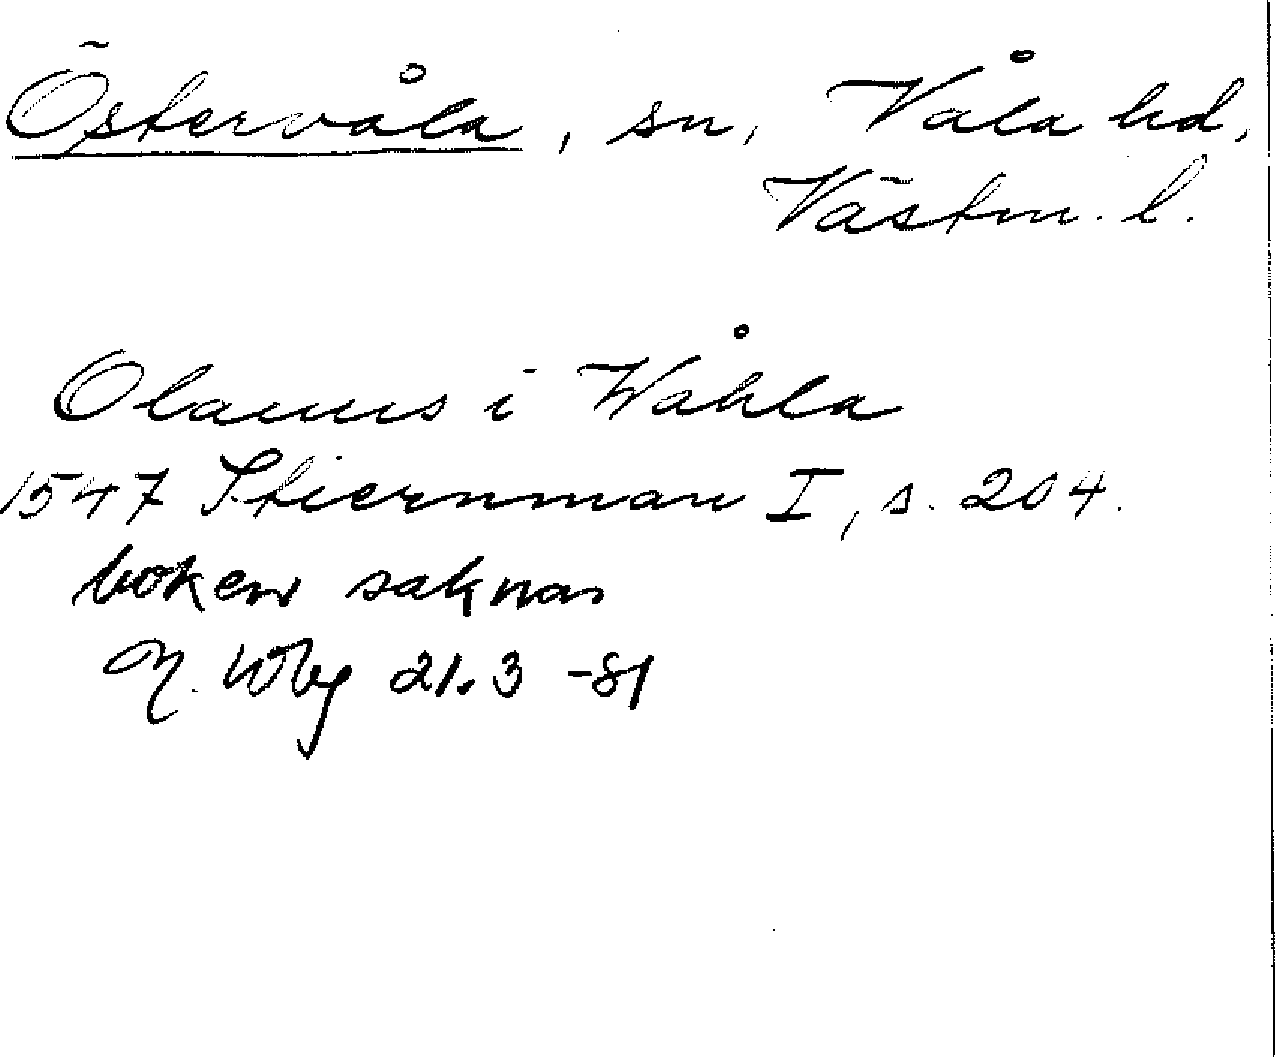 Östervåla, sn, Våla hd,
Västm. l.
Olaus i Wåhla
1547 Stiernman I, s. 204.
boken saknas
N. Wbg 21.3 -81